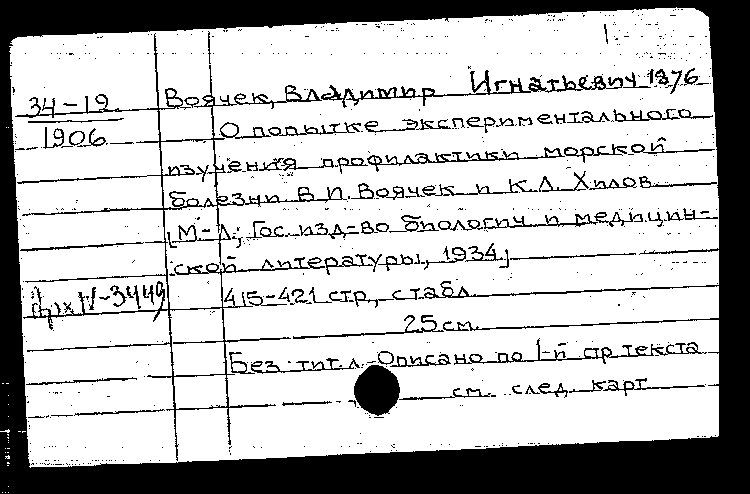 34-19
1906
Воячек, Владимир Игнатьевич 1876
О попытке экспериментального
изучения профилактики морской
болезни В.И. Воячек и К.Л. Хилов
[М-Л; Гос. изд-во биологич и медицин-
ской литературы, 1934]
415-421 стр., с табл
25 см.
Без тит. л. Описано по 1-й стр текста
см. след. карт
-3449